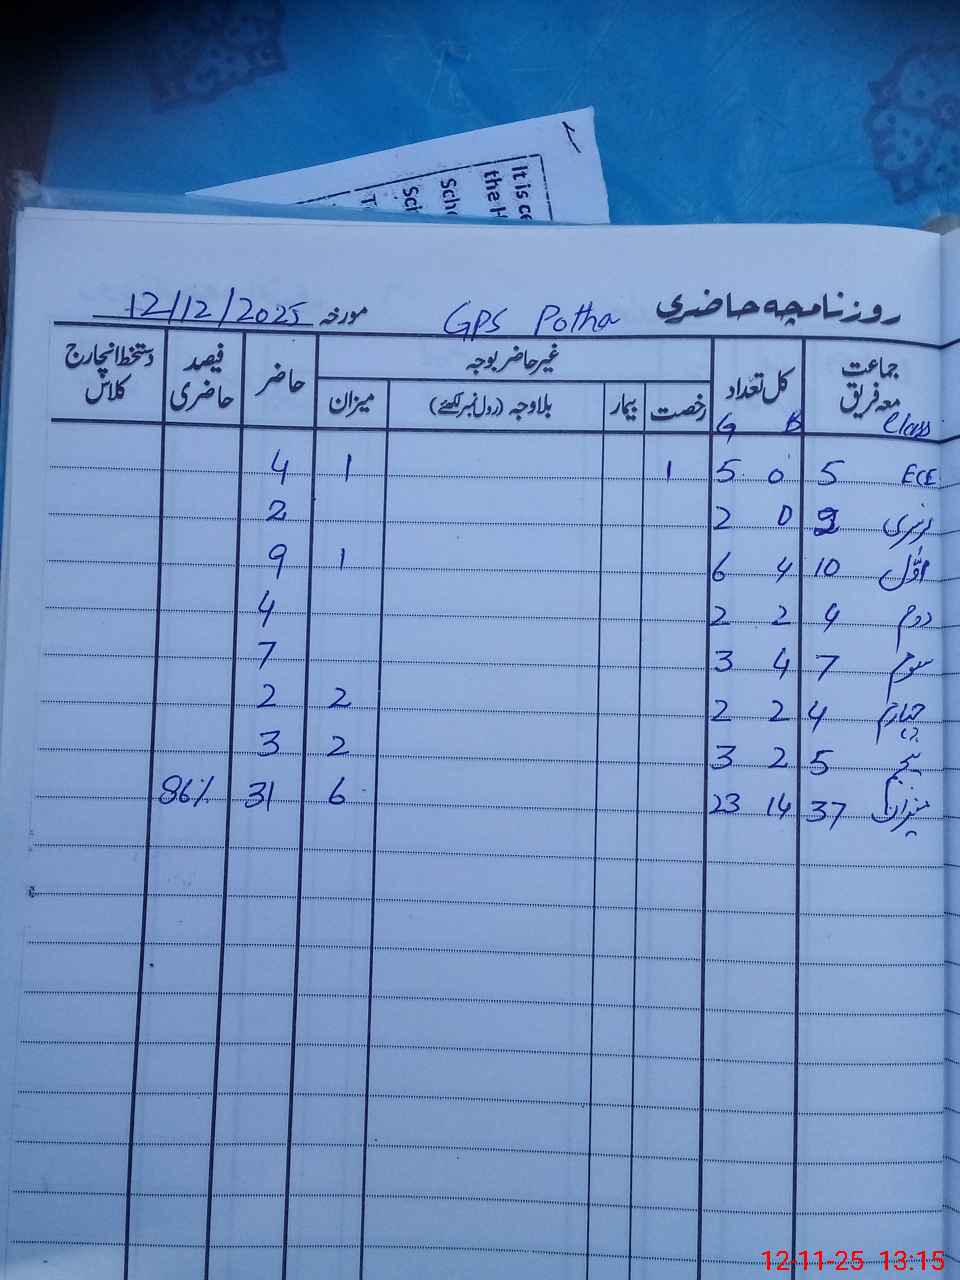 It is ce
the H
Sche
Sch
روزنامچہ حاضری GPS Potha مورخہ 12/12/2025
جماعت معہ فریق Class کل تعداد B G غیر حاضر بوجہ رخصت بیمار بلاوجہ (رول نمبر لکھئے) میزان حاضر فیصد حاضری دستخط انچارج کلاس
ECE 5 0 5 1 1 4
نرسری 2 0 2 2
اوّل 10 4 6 1 9
دوم 4 2 2 4
سوم 7 4 3 7
چہارم 4 2 2 2 2
پنجم 5 2 3 2 3
میزان 37 14 23 6 31 86%
12-11-25 13:15